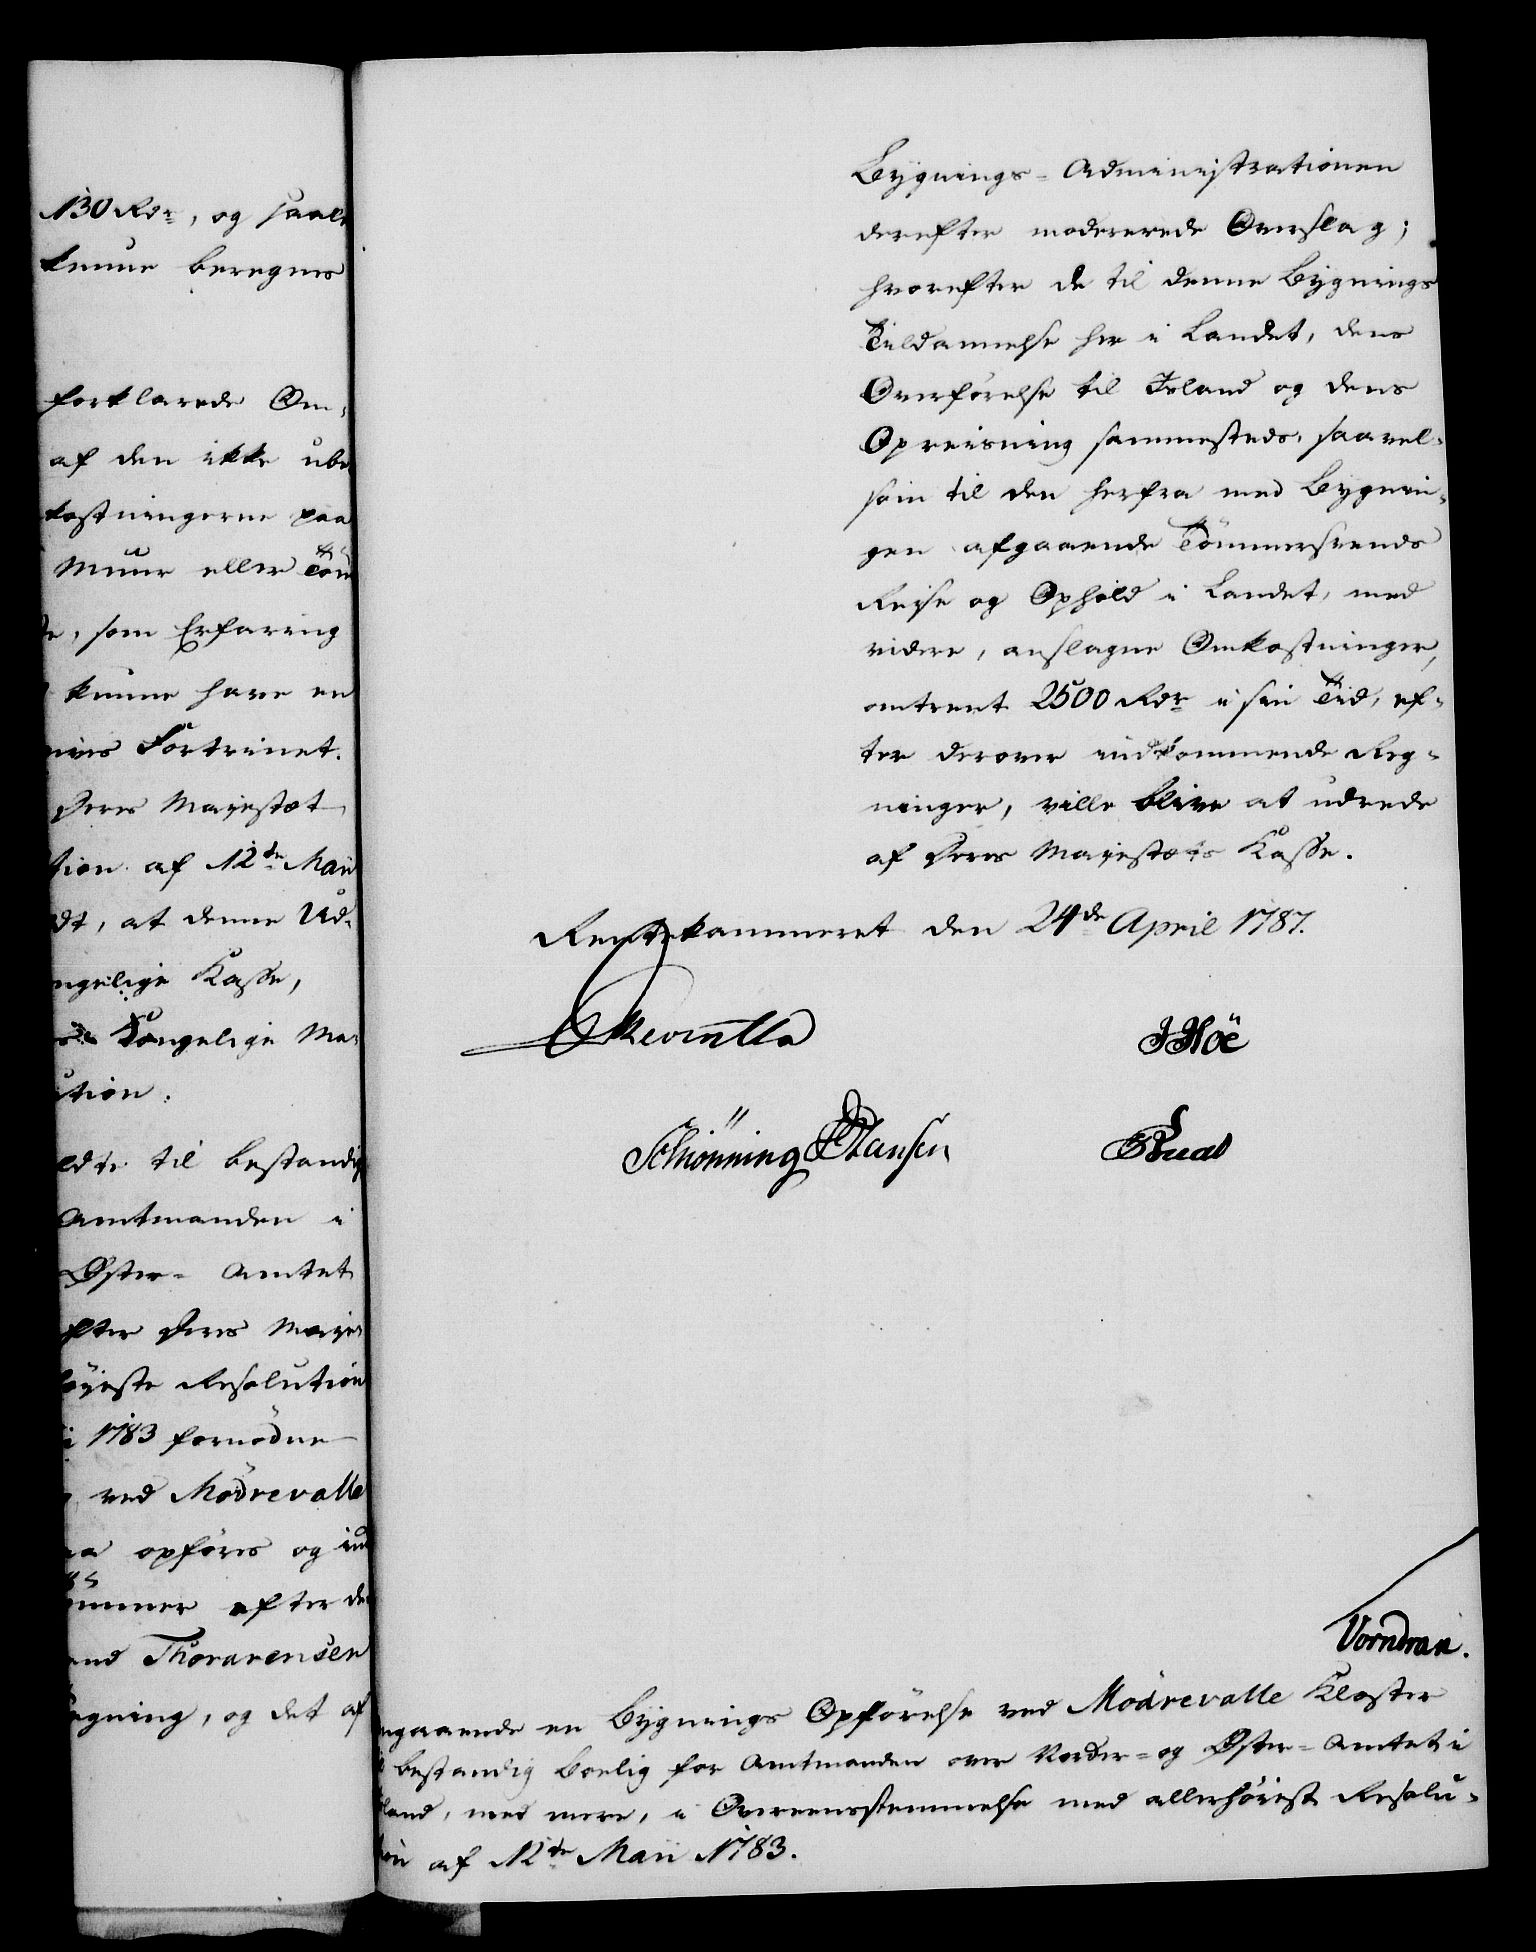 130 Rdr, og saale
kunne beregnes
forklarede Om-
af den ikke ube
kostningerne paa
Muur eller Töm
, som Erfaring
kunne have en
Fortrinet.
Deres Majestæt
tion af 12te Maii
dt, at denne Ud-
ngelige Kasse,
Kongelige Ma-
ution.
til bestandig
Amtmanden i
Øster- Amtet
efter Deres Maje-
höieste Resolution
1783 fornödne
ved Mödrevalle
opföres og ind
ömmer efter de
Thorarensen
egning, og det af
Bygnings-Administrationen
derefter modererede Overslag;
hvorefter de til denne Bygnings
Tildannelse her i Landet, dens
Overförelse til Island og dens
Opreisning sammesteds, saavel-
som til den herfra med Bygnin-
gen afgaaende Tömmersvends
Reise og Ophold i Landet, med
videre, anslagne Omkostninger,
omtrent 2500 Rdr i sin Tid, ef-
ter derover indkommende Reg-
ninger, ville blive at udrede
af Deres Majestæts Kasse.
Rentekammeret den 24de April 1787.
Reventlo
JHöe
Schiönning Hansen
Vorndran.
ngaaende en Bygnings Opförelse ved Mödrevalle Kloster
bestandig Boelig for Amtmanden over Norder- og Øster-Amtet i
land, med mere, i Overeensstemmelse med allerhöiest Resolu-
ion af 12te Maii 1783.